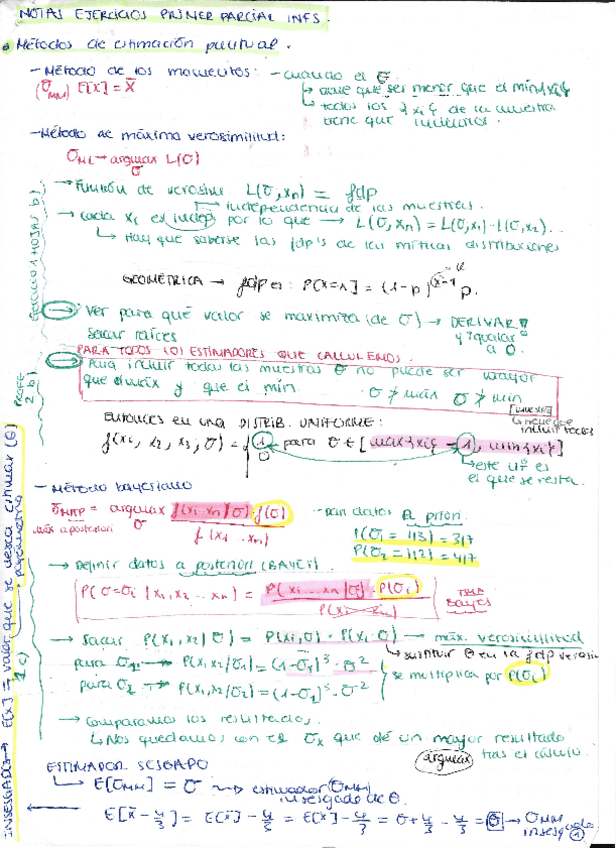 NOTAS EJERCICIOS PRIMER PARCIAL INFS.
Métodos de estimación puntual.
- Método de los momentos: - cuando el θ
(θ̂MM) E[X] = X̄
tiene que ser menor que el min{xi}
todos los {xi} de la muestra
tiene que
- Método de máxima verosimilitud:
θML → argmax L(θ)
θ
→ Función de verosim L(θ, xn) = fdp
independencia de las muestras.
→ cada xi es indep por lo que → L(θ, xn) = L(θ, x1) · L(θ, x2)...
↳ Hay que saberse las fdp's de las míticas distribuciones
GEOMÉTRICA → fdp es: P[X=x] = (1-p)^(x-1) p.
→ Ver para qué valor se maximiza (de θ) → DERIVAR
sacar raíces y igualar a 0.
PARA TODOS LOS ESTIMADORES QUE CALCULEMOS.
→ Para incluir todas las muestras θ no puede ser mayor
que el máx y que el mín θ ≯ máx θ ≯ mín
Entonces en una DISTRIB. UNIFORME:
f(x1, x2, x3, θ) = { 1 para θ ∈ [max{xi} - 1, min{xi}]
0
este nº es
el que se resta.
- Método bayesiano
θ̂MAP = argmax f(x1...xn|θ) f(θ)
θ
f(x1...xn)
máx a posteriori
dan datos A priori.
P(θ1 = 1/3) = 3/7
P(θ2 = 1/2) = 4/7
→ Definir datos a posteriori (BAYES)
P(θ=θi | x1, x2 ... xn) = P(xi...xn|θ) · P(θi)
P(x1...xn)
TMA
Bayes
→ Sacar P(x1, x2|θ) = P(x1, θ) · P(x1 θ) → máx. verosimilitud
sustituir θ en la fdp verosim
para θ1 → P(x1, x2/θ1) = (1-θ1)³ · θ²
para θ2 → P(x1, x2/θ2) = (1-θ2)³ · θ²
se multiplica por P(θi)
→ Comparamos los resultados.
↳ Nos quedamos con el θx que dé un mayor resultado
argmax tras el cálculo.
ESTIMADOR SESGADO
↳ E[θMM] = θ ⟿ estimador (θMM)
insesgado de θ.
E[x̄ - 4/3] = E[x̄] - 4/3 = E[x] - 4/3 = θ + 4/3 - 4/3 = θ → θMM
insesgado
1
EJERCICIO 1 HOJAS b)
PROFE
2 b)
1 c)
INSESGADO → E[X] = valor que se desea estimar (θ)
parámetro